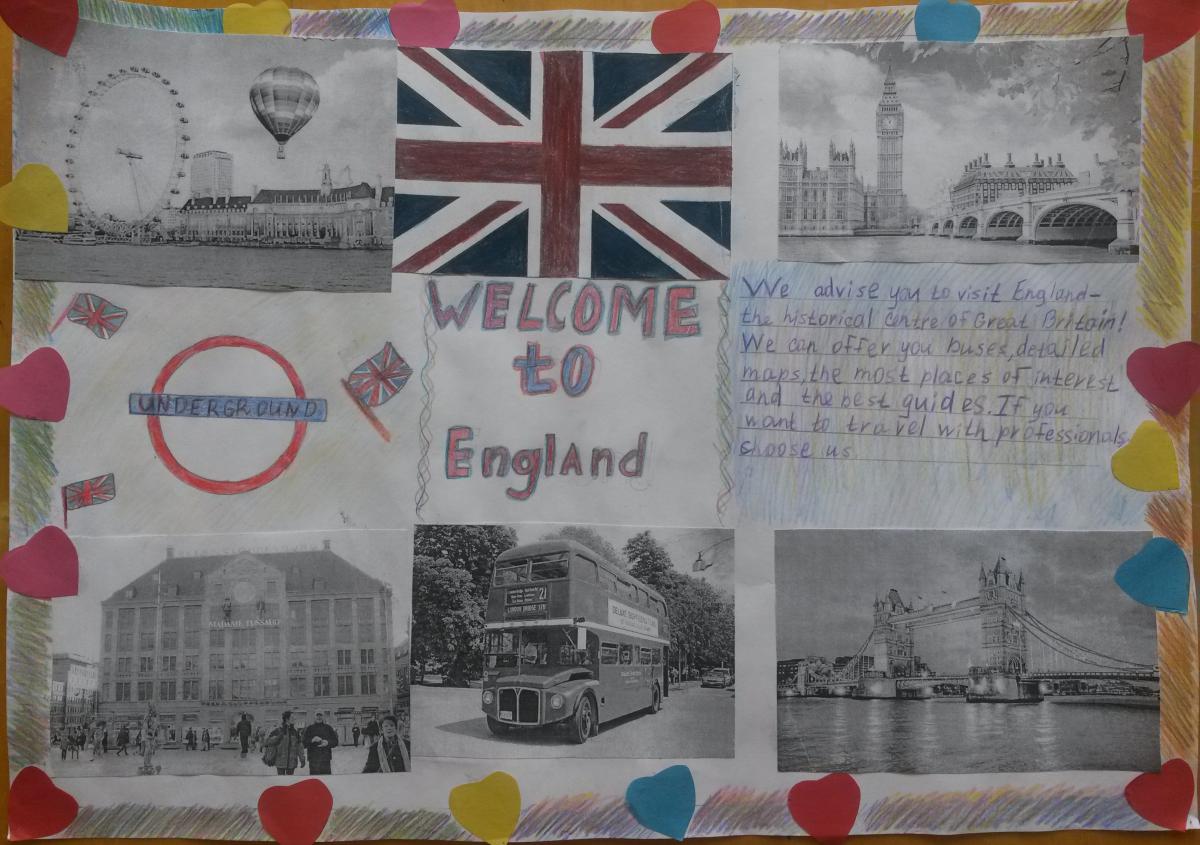 WELCOME
to
England
We advise you to visit England-
the historical centre of Great Britain!
We can offer you buses, detailed
maps, the most places of interest
and the best guides. If you
want to travel with professionals
choose us
UNDERGROUND
MADAME TUSSAUD
21
LONDON BRIDGE STN